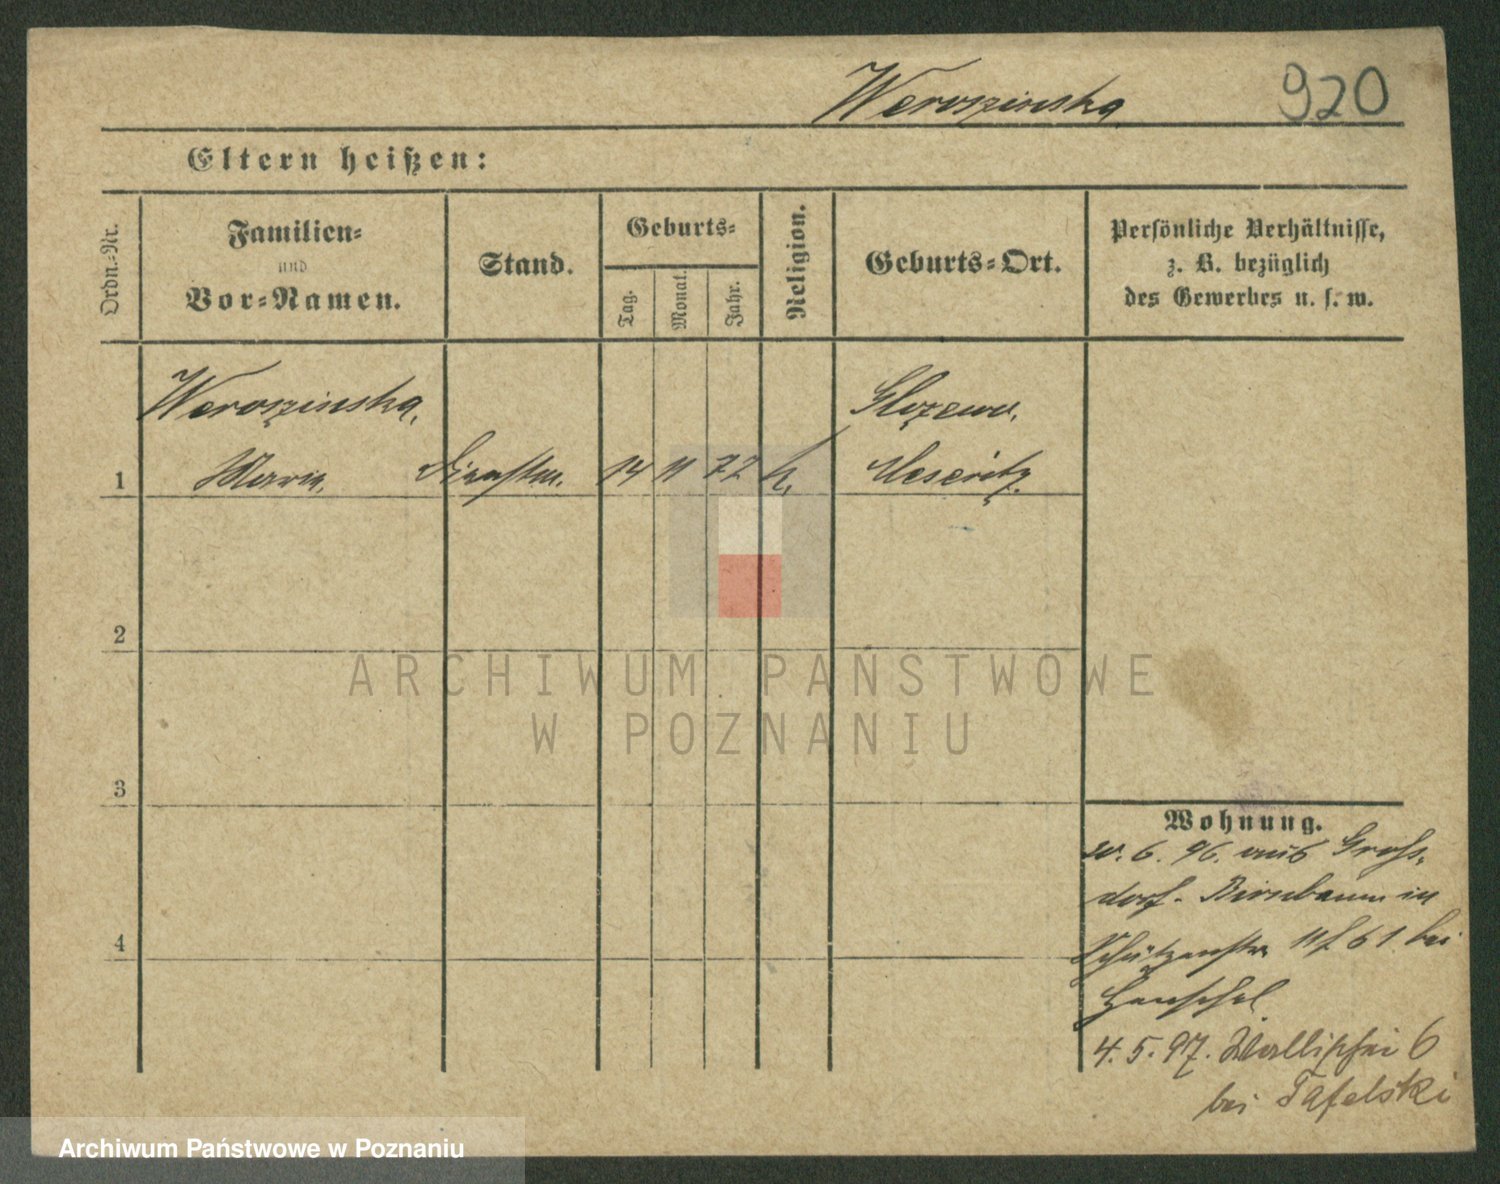 Weroszinska
920
Eltern heißen:
Ordn.-Nr.
Familien-
und
Vor-Namen.
Stand.
Geburts-
Tag.
Monat.
Jahr.
Religion.
Geburts-Ort.
Persönliche Verhältnisse,
z. B. bezüglich
des Gewerbes u. s. w.
Weroszinska,
Maria,
1
14 11 77 k.
Meseritz.
2
3
4
Wohnung.
6. 96. aus Groß-
dorf - Birnbaum in
Schützenstr. 61 bei
Henschel
4. 5. 97. Wallischei 6
bei Tafelski
ARCHIWUM PAŃSTWOWE
W POZNANIU
Archiwum Państwowe w Poznaniu